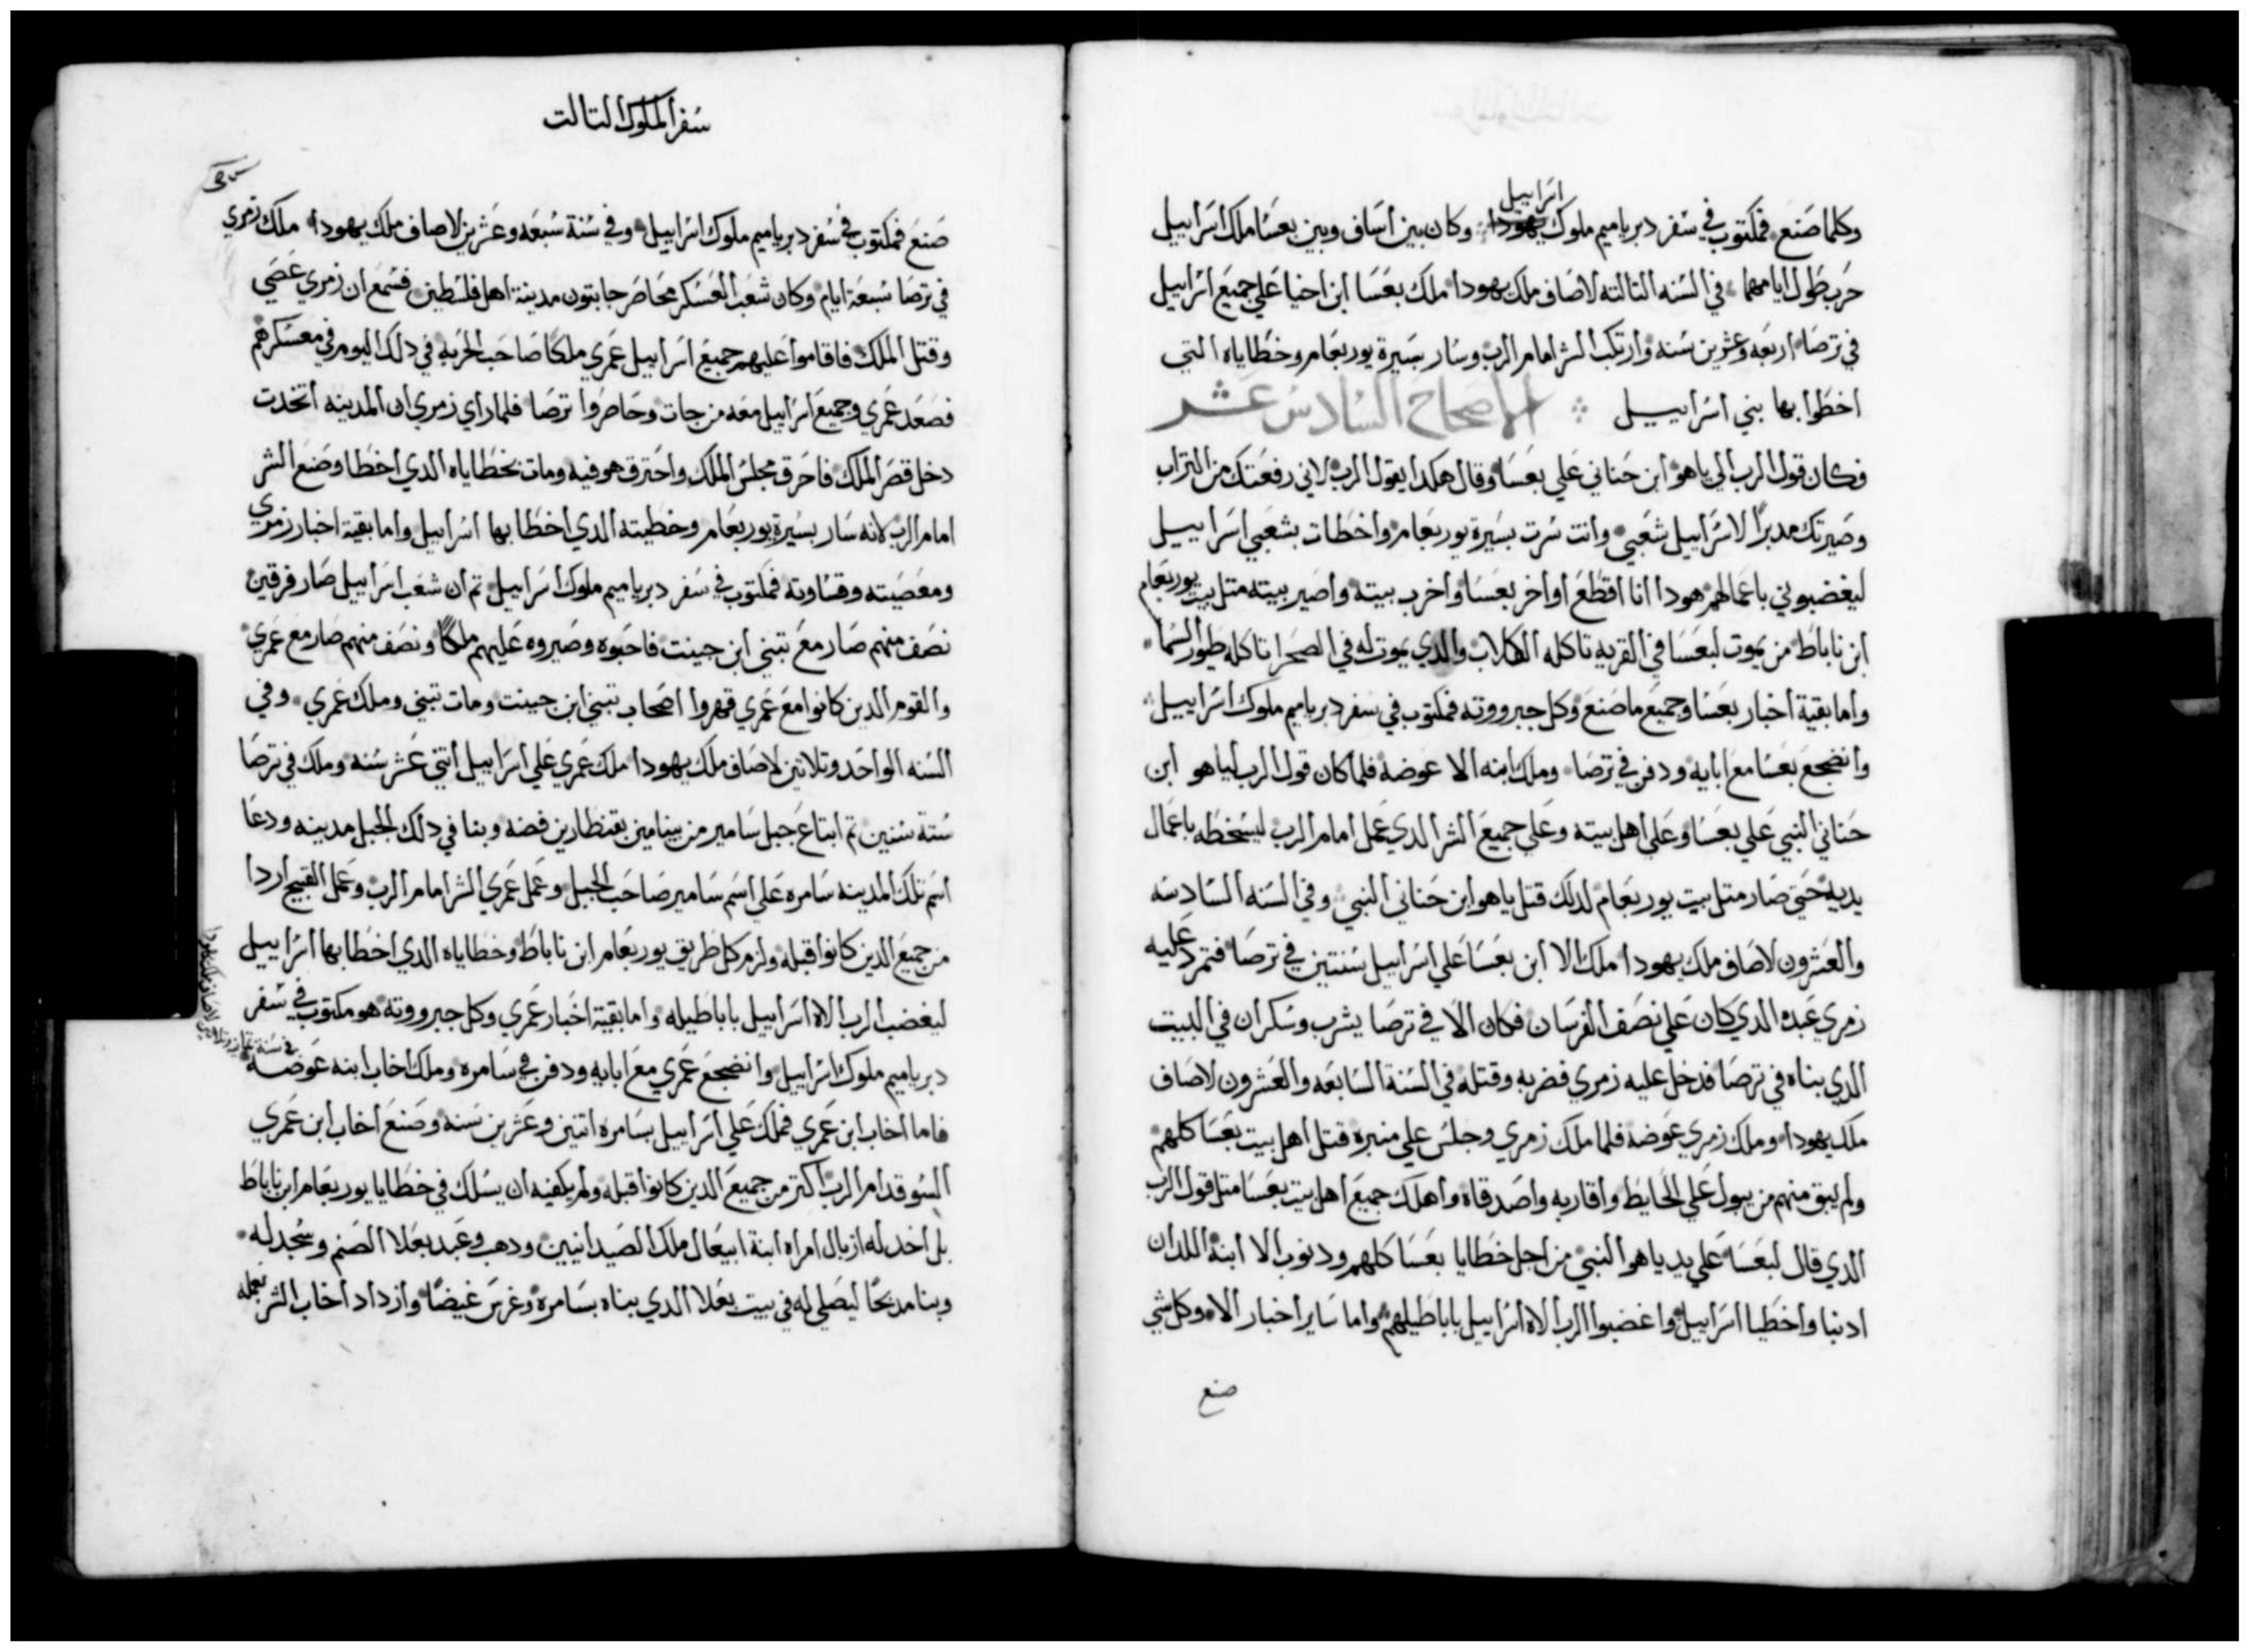 وكلما صنع فمكتوب في سفر دبرياميم ملوك يهودا اسراييل وكان بين اساف وبين بعسا ملك اسراييل
حرب طول ايامهما في السنه التالته لاصاف ملك يهودا ملك بعسا ابن احيا علي جميع اسراييل
في ترصا اربعه وعشرين سنه وارتكب الشر امام الرب وسار بسيرة يوربعام وخطاياه التي
اخطوا بها بني اسراييل الاصحاح السادس عشر
وكان قول الرب الي ياهو ابن حناني علي بعسا وقال هكدا يقول الرب لاني رفعتك من التراب
وصيرتك مدبرا لاسراييل شعبي وانت سرت بسيرة يوربعام واخطات بشعبي اسراييل
ليغضبوني باعمالهم هودا انا اقطع اواخر بعسا واخرب بيته واصير بيته متل بيت يوربعام
ابن ناباط من يموت لبعسا في القريه تاكله الكلاب والدي يموت له في الصحرا تاكله طيور السما
واما بقية اخبار بعسا وجميع ما صنع وكل جبرووته فمكتوب في سفر دبرياميم ملوك اسراييل
وانضجع بعسا مع ابايه ودفن في ترصا وملك ابنه الا عوضه فلما كان قول الرب لياهو ابن
حناني النبي علي بعسا وعلي اهل بيته وعلي جميع الشر الدي عمل امام الرب ليسخطه باعمال
يديه حتي صار متل بيت يوربعام لدلك قتل ياهو ابن حناني النبي وفي السنه السادسه
والعشرون لاصاف ملك يهودا ملك الا ابن بعسا علي اسراييل سنتين في ترصا فتمرد عليه
زمري عبده الدي كان علي نصف الفرسان فكان الا في ترصا يشرب وسكران في البيت
الدي بناه في ترصا فدخل عليه زمري فضربه وقتله في السنة السابعه والعشرون لاصاف
ملك يهودا وملك زمري عوضه فلما ملك زمري وجلس علي منبره قتل اهل بيت بعسا كلهم
ولم يبق منهم من يبول علي الحايط واقاربه واصدقاه واهلك جميع اهل بيت بعسا متل قول الرب
الدي قال لبعسا علي يد ياهو النبي من اجل خطايا بعسا كلهم ودنوب الا ابنه اللدان
ادنبا واخطيا اسراييل واغضبوا الرب الاه اسراييل باباطيلهم واما ساير اخبار الا وكل شي
صنع
سفر الملوك التالت
صنع فمكتوب في سفر دبرياميم ملوك اسراييل وفي سنة سبعه وعشرين لاصاف ملك يهودا ملك زمري
في ترصا سبعة ايام وكان شعب العسكر محاصر جابتون مدينة اهل فلسطين فسمع ان زمري عصي
وقتل الملك فاقاموا عليهم جميع اسراييل عمري ملكا صاحب الحربه في دلك اليوم في معسكرهم
فصعد عمري وجميع اسراييل معه من جات وحاصروا ترصا فلما راي زمري ان المدينه اتخدت
دخل قصر الملك فاحرق مجلس الملك واحترق هو فيه ومات بخطاياه الدي اخطا وصنع الشر
امام الرب لانه سار بسيرة يوربعام وخطيته الدي اخطا بها اسراييل واما بقية اخبار زمري
ومعصيته وقساوته فمكتوب في سفر دبرياميم ملوك اسراييل تم ان شعب اسراييل صار فرقين
نصف منهم صار مع تبني ابن جينت فاحبوه وصيروه عليهم ملكا ونصف منهم صار مع عمري
والقوم الدين كانوا مع عمري قهروا اصحاب تبني ابن جينت ومات تبني وملك عمري وفي
السنه الواحد وتلاتين لاصاف ملك يهودا ملك عمري علي اسراييل اتني عشر سنه وملك في ترصا
ستة سنين تم ابتاع جبل سامير من بينامين بقنطارين فضه وبنا في دلك الجبل مدينه ودعا
اسم تلك المدينه سامره علي اسم سامير صاحب الجبل وعمل عمري الشر امام الرب وعمل القبيح اردا
من جميع الدين كانوا قبله ولزم كل طريق يوربعام ابن ناباط وخطاياه الدي اخطا بها اسراييل
ليغضب الرب الاه اسراييل باباطيله واما بقية اخبار عمري وكل جبرووته هو مكتوب في سفر
دبرياميم ملوك اسراييل وانضجع عمري مع ابايه ودفن في سامره وملك اخاب ابنه عوضه
في سنة تمانيه وتلاتين لاصاف ملك يهودا
فاما اخاب ابن عمري فملك علي اسراييل بسامره اتنين وعشرين سنه وصنع اخاب ابن عمري
السو قدام الرب اكتر من جميع الدين كانوا قبله ولم يكفيه ان يسلك في خطايا يوربعام ابن ناباط
بل اخد له ازبال امراه ابنة ابيعال ملك الصيدانيين ودهب وعبد بعلا الصنم وسجد له
وبنا مدبحا ليصلي له في بيت بعلا الدي بناه بسامره وغرس غيضا وازداد اخاب الشر بعمله